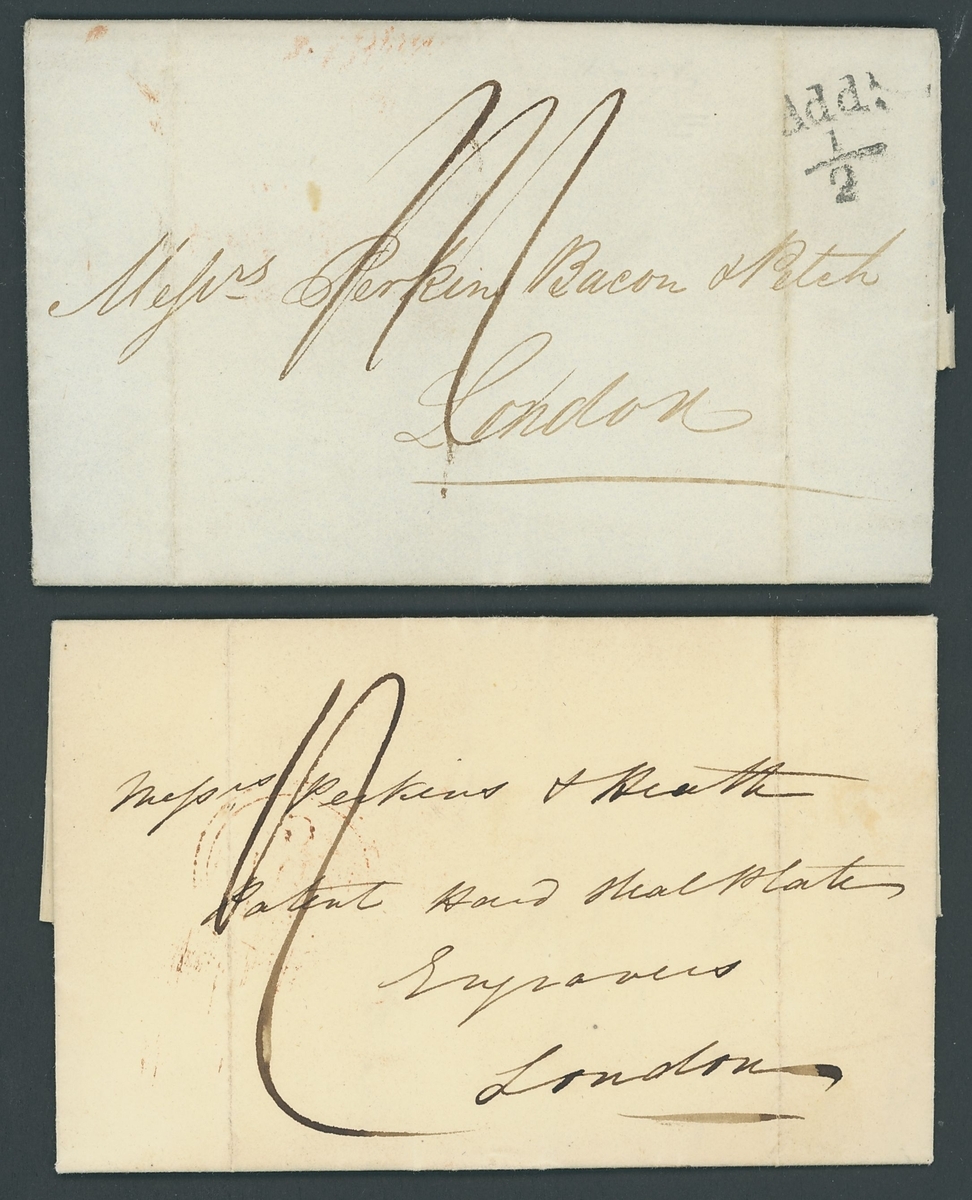 Add:
1/2
Messrs Perkins Bacon & Petch
London
Messrs Perkins & Heath
Patent Hard Steal Plate
Engravers
London